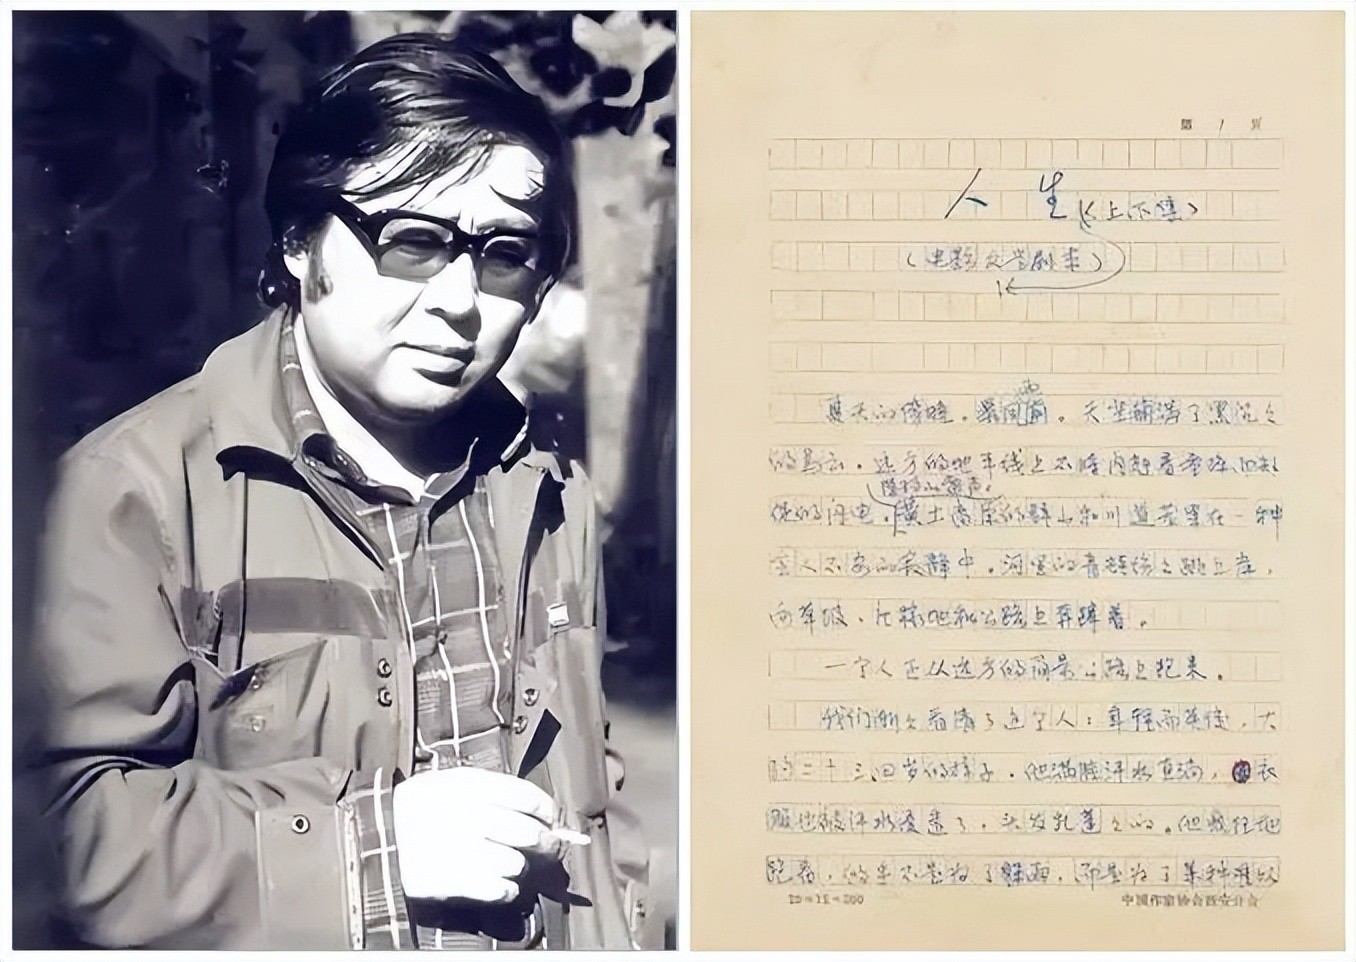 第 1 页
人 生 (上下集)
(电影文学剧本)
夏天的傍晚。暴风雨前。天空铺满了黑沉沉
的乌云。远方的地平线上不时闪
隆隆的雷声。
的闪电。黄土高原的群山和川道笼罩在一种
令人不安的寂静中。河里的青蛙纷纷跳上岸,
向草坡、庄稼地和公路上奔蹦着。
一个人正从远方的简易公路上跑来。
我们渐渐看清了这个人:年轻而英俊,大
约二十三四岁的样子。他满脸汗水直淌,衣
服也被汗水浸透了,头发乱蓬蓬的。他疯狂地
跑着,似乎不是为了躲雨,而是为了某种难以
20×15=300
中国作家协会西安分会